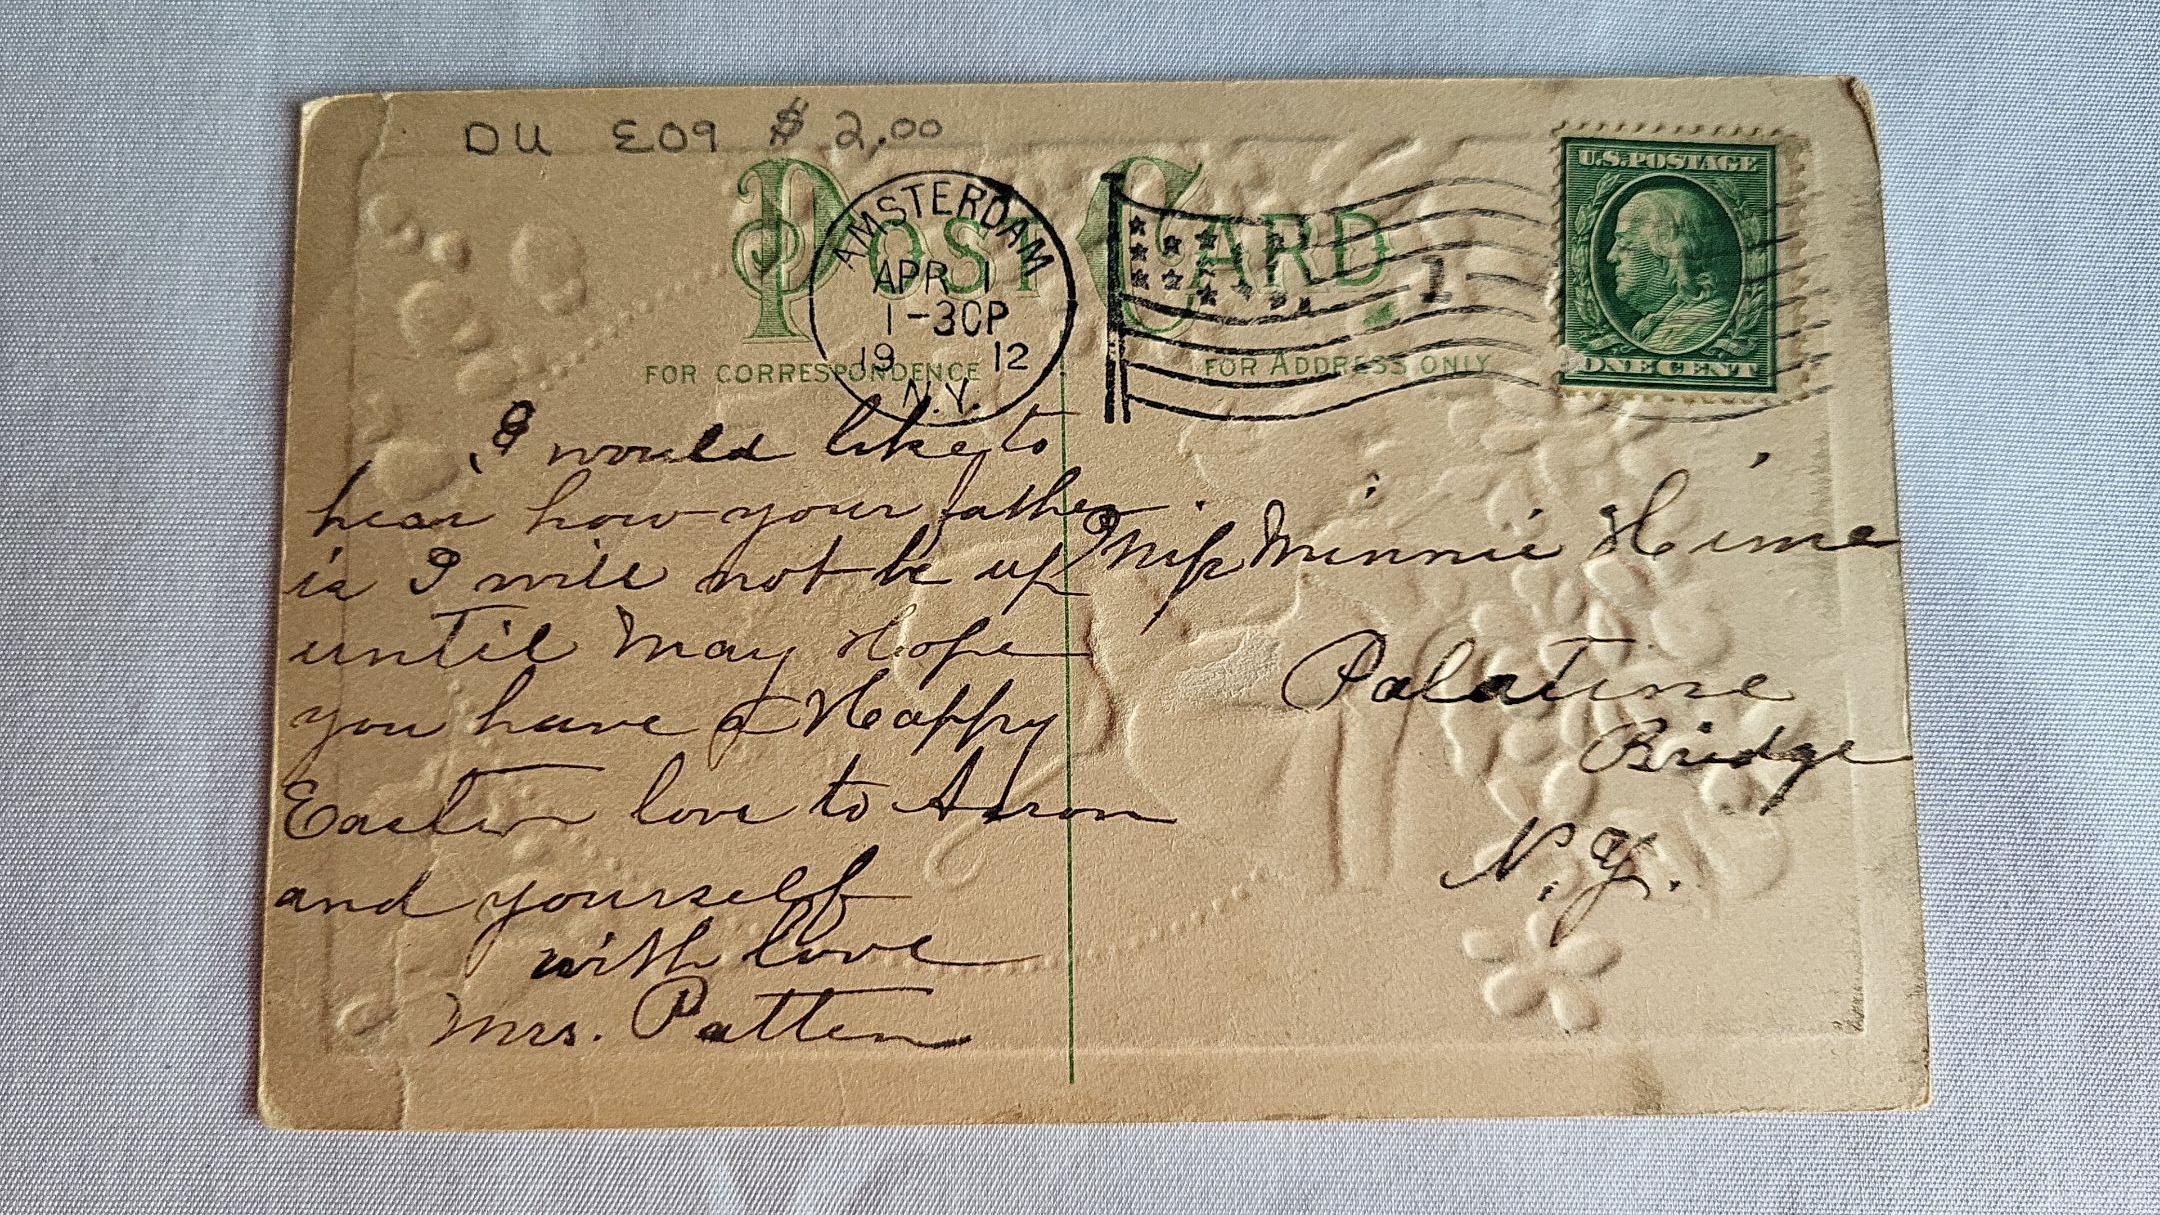 DU E09 $2.00
POST CARD.
AMSTERDAM
APR 1
1-30P
19 12
N.Y.
1
U.S. POSTAGE
ONE CENT
FOR CORRESPONDENCE
FOR ADDRESS ONLY
I would like to
hear how your father
is I will not be up
until May Hope
you have a Happy
Easter love to Aaron
and yourself
with love
Mrs. Patten
Miss Minnie Hime
Palatine
Bridge
N.Y.